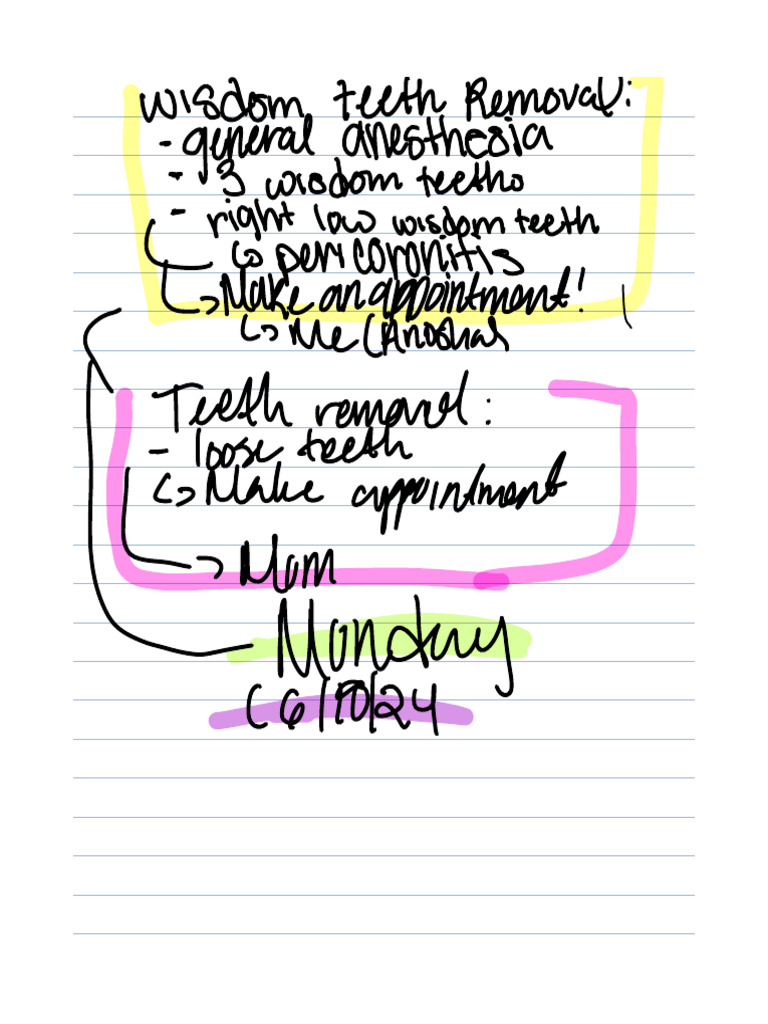 Wisdom Teeth Removal:
- general anesthesia
- 3 wisdom teeth
- right low wisdom teeth
↳ pericoronitis
↳ Make an appointment!
↳ Me (Anoshas
Teeth removal:
- loose teeth
↳ Make appointment
→ Mom
Monday
(6/10/24